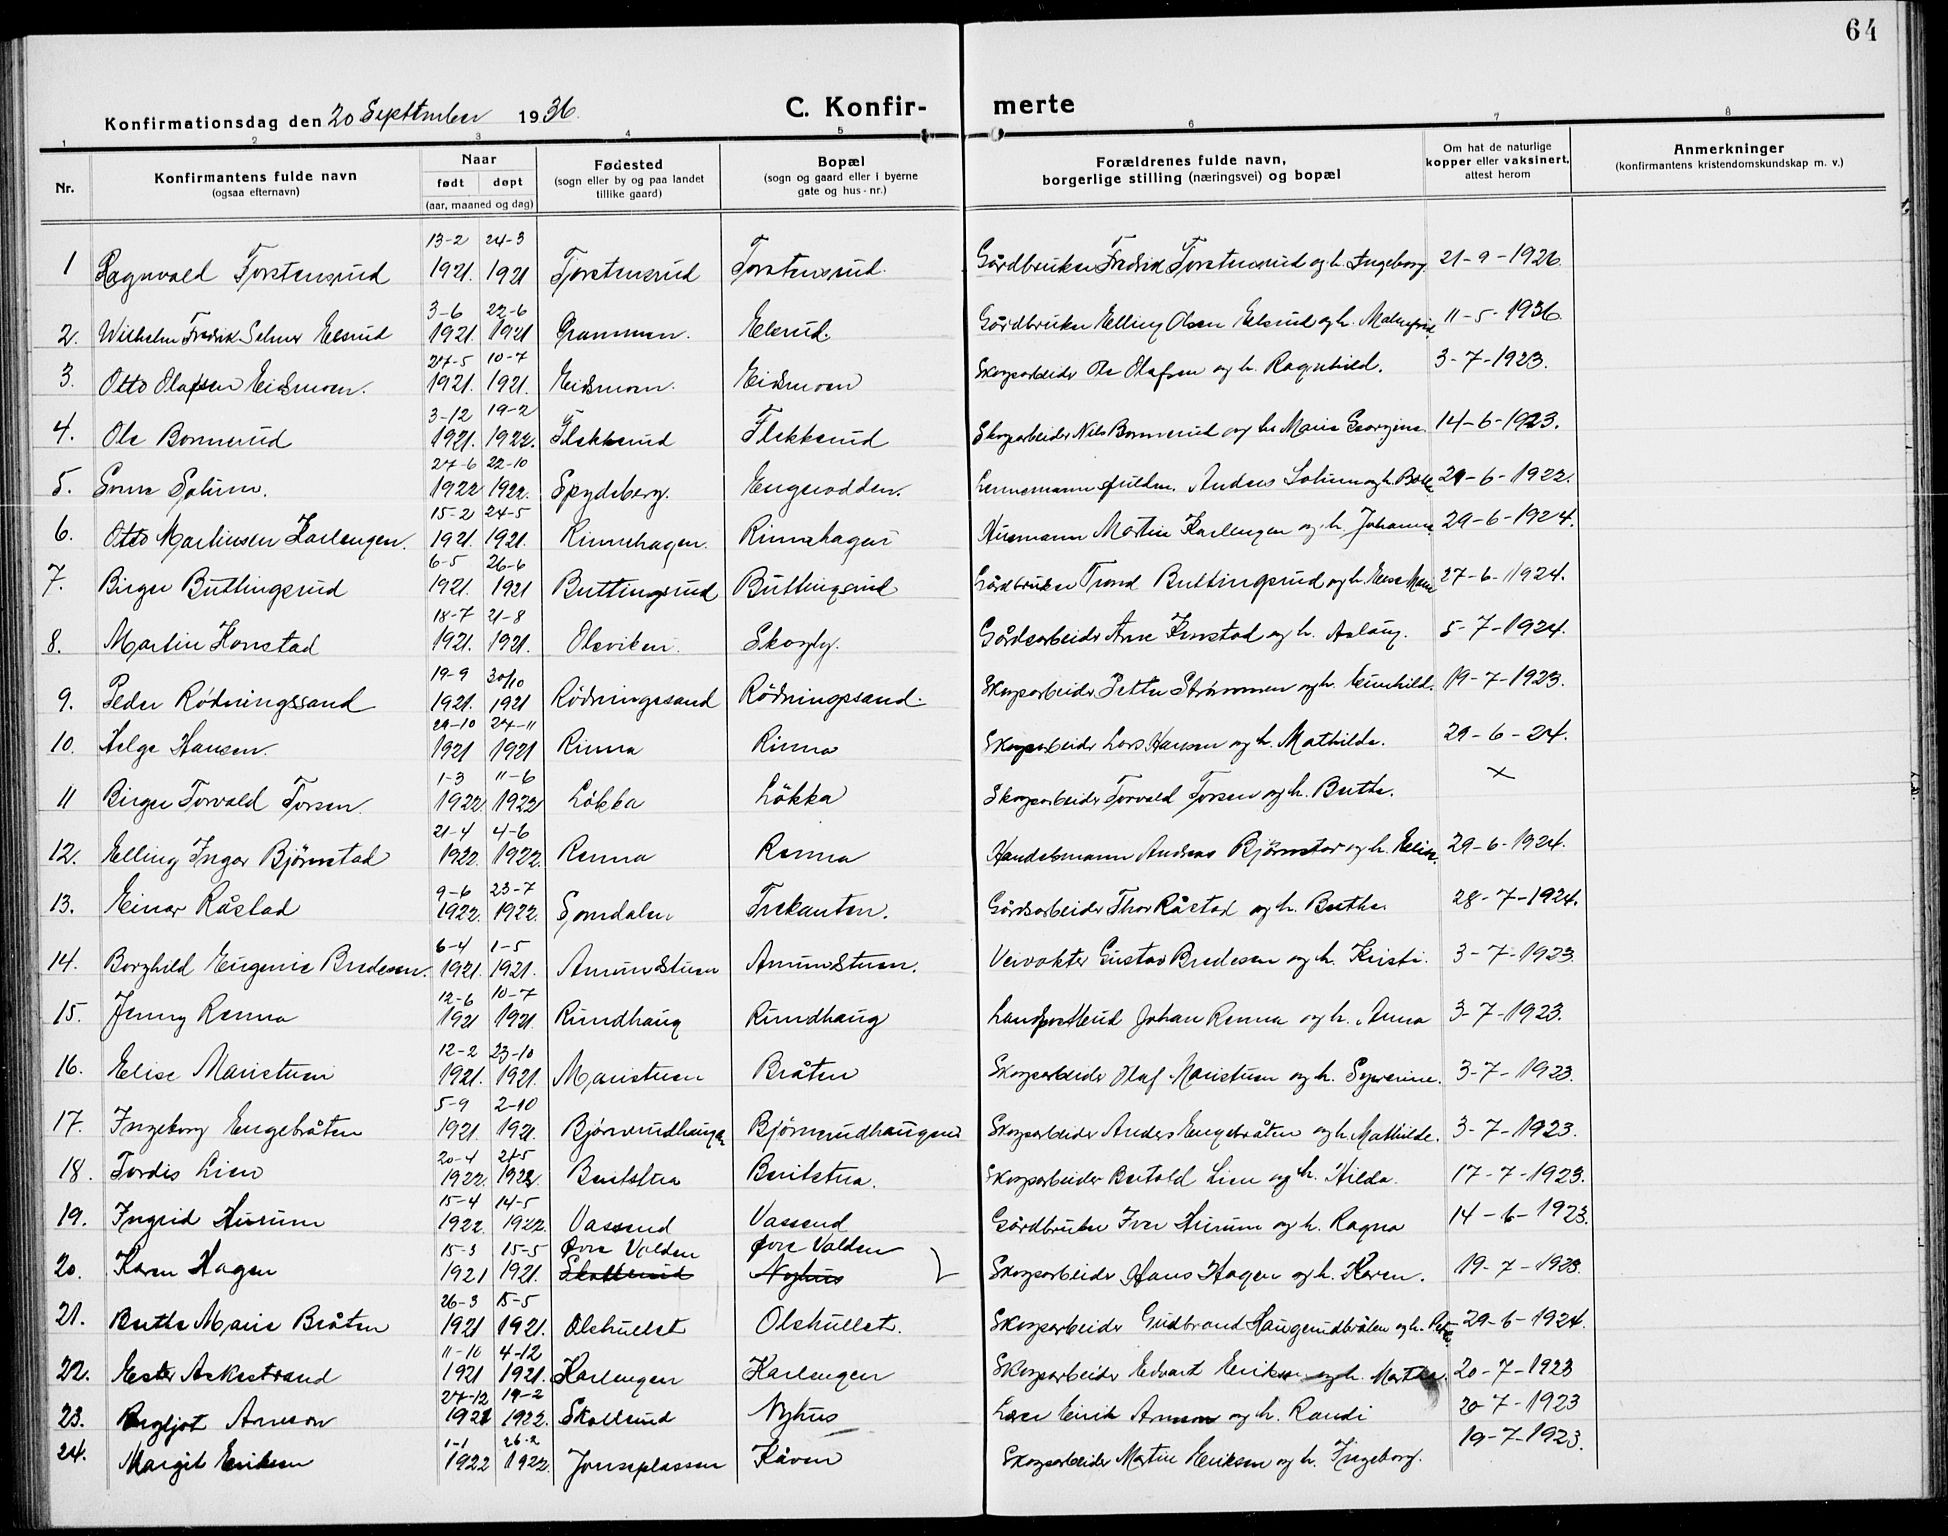 64
Konfirmationsdag den 20 September 1936. C. Konfir- merte
1 2 3 4 5 6 7 8
Nr. Konfirmantens fulde navn (ogsaa efternavn) Naar født døpt (aar, maaned og dag) Fødested (sogn eller by og paa landet tillike gaard) Bopæl (sogn og gaard eller i byerne gate og hus-nr.) Forældrenes fulde navn, borgerlige stilling (næringsvei) og bopæl Om hat de naturlige kopper eller vaksinert, attest herom Anmerkninger (konfirmantens kristendomskundskap m. v.)
1 Ragnvald Torstensrud 13-2 1921. 24-3 1921 Torstensrud Torstensrud. Gårdbruker Fredrik Torstensrud og h. Ingeborg 21-9-1926.
2. Wilhelm Fredrik Selmer Elsrud 3-6 1921. 22-6 1921 Grammen. Elsrud Gårdbruker Elling Olsen Elsrud og h. Malmfrid 11-5-1936.
3. Otto Olafsen Eidsmoen. 27-5 1921. 10-7 1921. Eidsmoen. Eidsmoen Skogsarbeider Ole Olafsen og h. Ragnhild. 3-7-1923.
4. Ole Bonnerud 3-12 1921. 19-2 1922. Flekkerud Flekkerud Skogsarbeider Nils Bonnerud og h. Marie Georgine. 14-6-1923.
5. Solum. 27-6 1922 22-10 1922. Spydeberg. Engerodden. Lennsmannsfuldm. Anders Solum og h. 29-6-1922.
6. Otto Martinsen Karlengen. 15-2 1921. 24-5 1921. Rinnehagen. Rinnehagen Husmann Martin Karlengen og h. Johanne 29-6-1924.
7. Birger Buttingsrud 6-5 1921. 26-6 1921 Buttingsrud Buttingsrud Gårdbruker Trond Buttingsrud og h. Else Marie 27-6-1924.
8. Martin Konstad 18-7 1921. 21-8 1921. Olsviken. Skogly. Gårdsarbeider Arne Konstad og h. Aslaug. 5-7-1924.
9. Peder Rödningssand 19-9 1921. 30/10 1921 Rödningssand Rödningssand. Skogsarbeider Petter Strömmen og h. Gunhild. 19-7-1923.
10. Helge Hansen. 29-10 1921 24-11 1921 Rinna Rinna Skogsarbeider Lars Hansen og h. Mathilde. 29-6-24.
11 Birger Torvald Torsen. 1-3 1922 11-6 1922 Lökka Lökka Skogsarbeider Torvald Torsen og h. Berthe. x
12. Elling Ingar Björnstad 21-4 1922. 4-6 1922. Renna Renna Handelsmann Andreas Björnstad og h. Elise. 29-6-1924.
13. Einar Råstad 9-6 1922. 23-7 1922. Somdalen Trekanten. Gårdsarbeider Thor Råstad og h. Berthe. 28-7-1924.
14. Borghild Eugenie Bredesen. 6-4 1921. 1-5 1921. Amundstuen Amundstuen. Veivokter Gustav Bredesen og h. Kristi. 3-7-1923.
15. Jenny Renna 12-6 1921 10-7 1921. Rundhaug Rundhaug Landpostbud Johan Renna og h. Anna 3-7-1923.
16. Elise Maristuen 12-2 1921. 23-10 1921. Maristuen Bråten Skogsarbeider Olaf Maristuen og h. Syverine. 3-7-1923.
17. Ingeborg Engebråten 5-9 1921. 2-10 1921. Björnerudhaugen Björnerudhaugen Skogsarbeider Anders Engebråten og h. Mathilde. 3-7-1923.
18. Tordis Lien 20-4 1922. 21-5 1922. Beritstua Beritstua. Skogsarbeider Bertold Lien og h. Hilda. 17-7-1923.
19. Ingrid Hurum 15-4 1922. 14-5 1922. Vassend Vassend Gårdbruker Iver Hurum og h. Ragna 14-6-1923.
20. Karen Hagen 15-3 1921 15-5 1921. Øvre Valden Skollerud Øvre Valden Nyhus Skogsarbeider Hans Hagen og h. Karen. 19-7-1923.
21. Berthe Marie Bråten 26-3 1921 15-5 1921. Olshullet Olshullet. Skogsarbeider Gudbrand Haugerudbråten og h. 29-6-1924.
22. Ester Askestrand 11-10 1921 4-12 1921. Karlengen Karlengen Skogsarbeider Edvart Eriksen og h. Marthe. 20-7-1923
23. Bergljot Arneson 27-12 1921 19-2 1922. Skollerud Nyhus Lærer Eirik Arneson og h. Randi 20-7-1923
24. Margit Eriksen 1-1 1922 26-2 1922. Jonseplassen Kåven Skogsarbeider Martin Eriksen og h. Ingeborg. 19-7-1923.